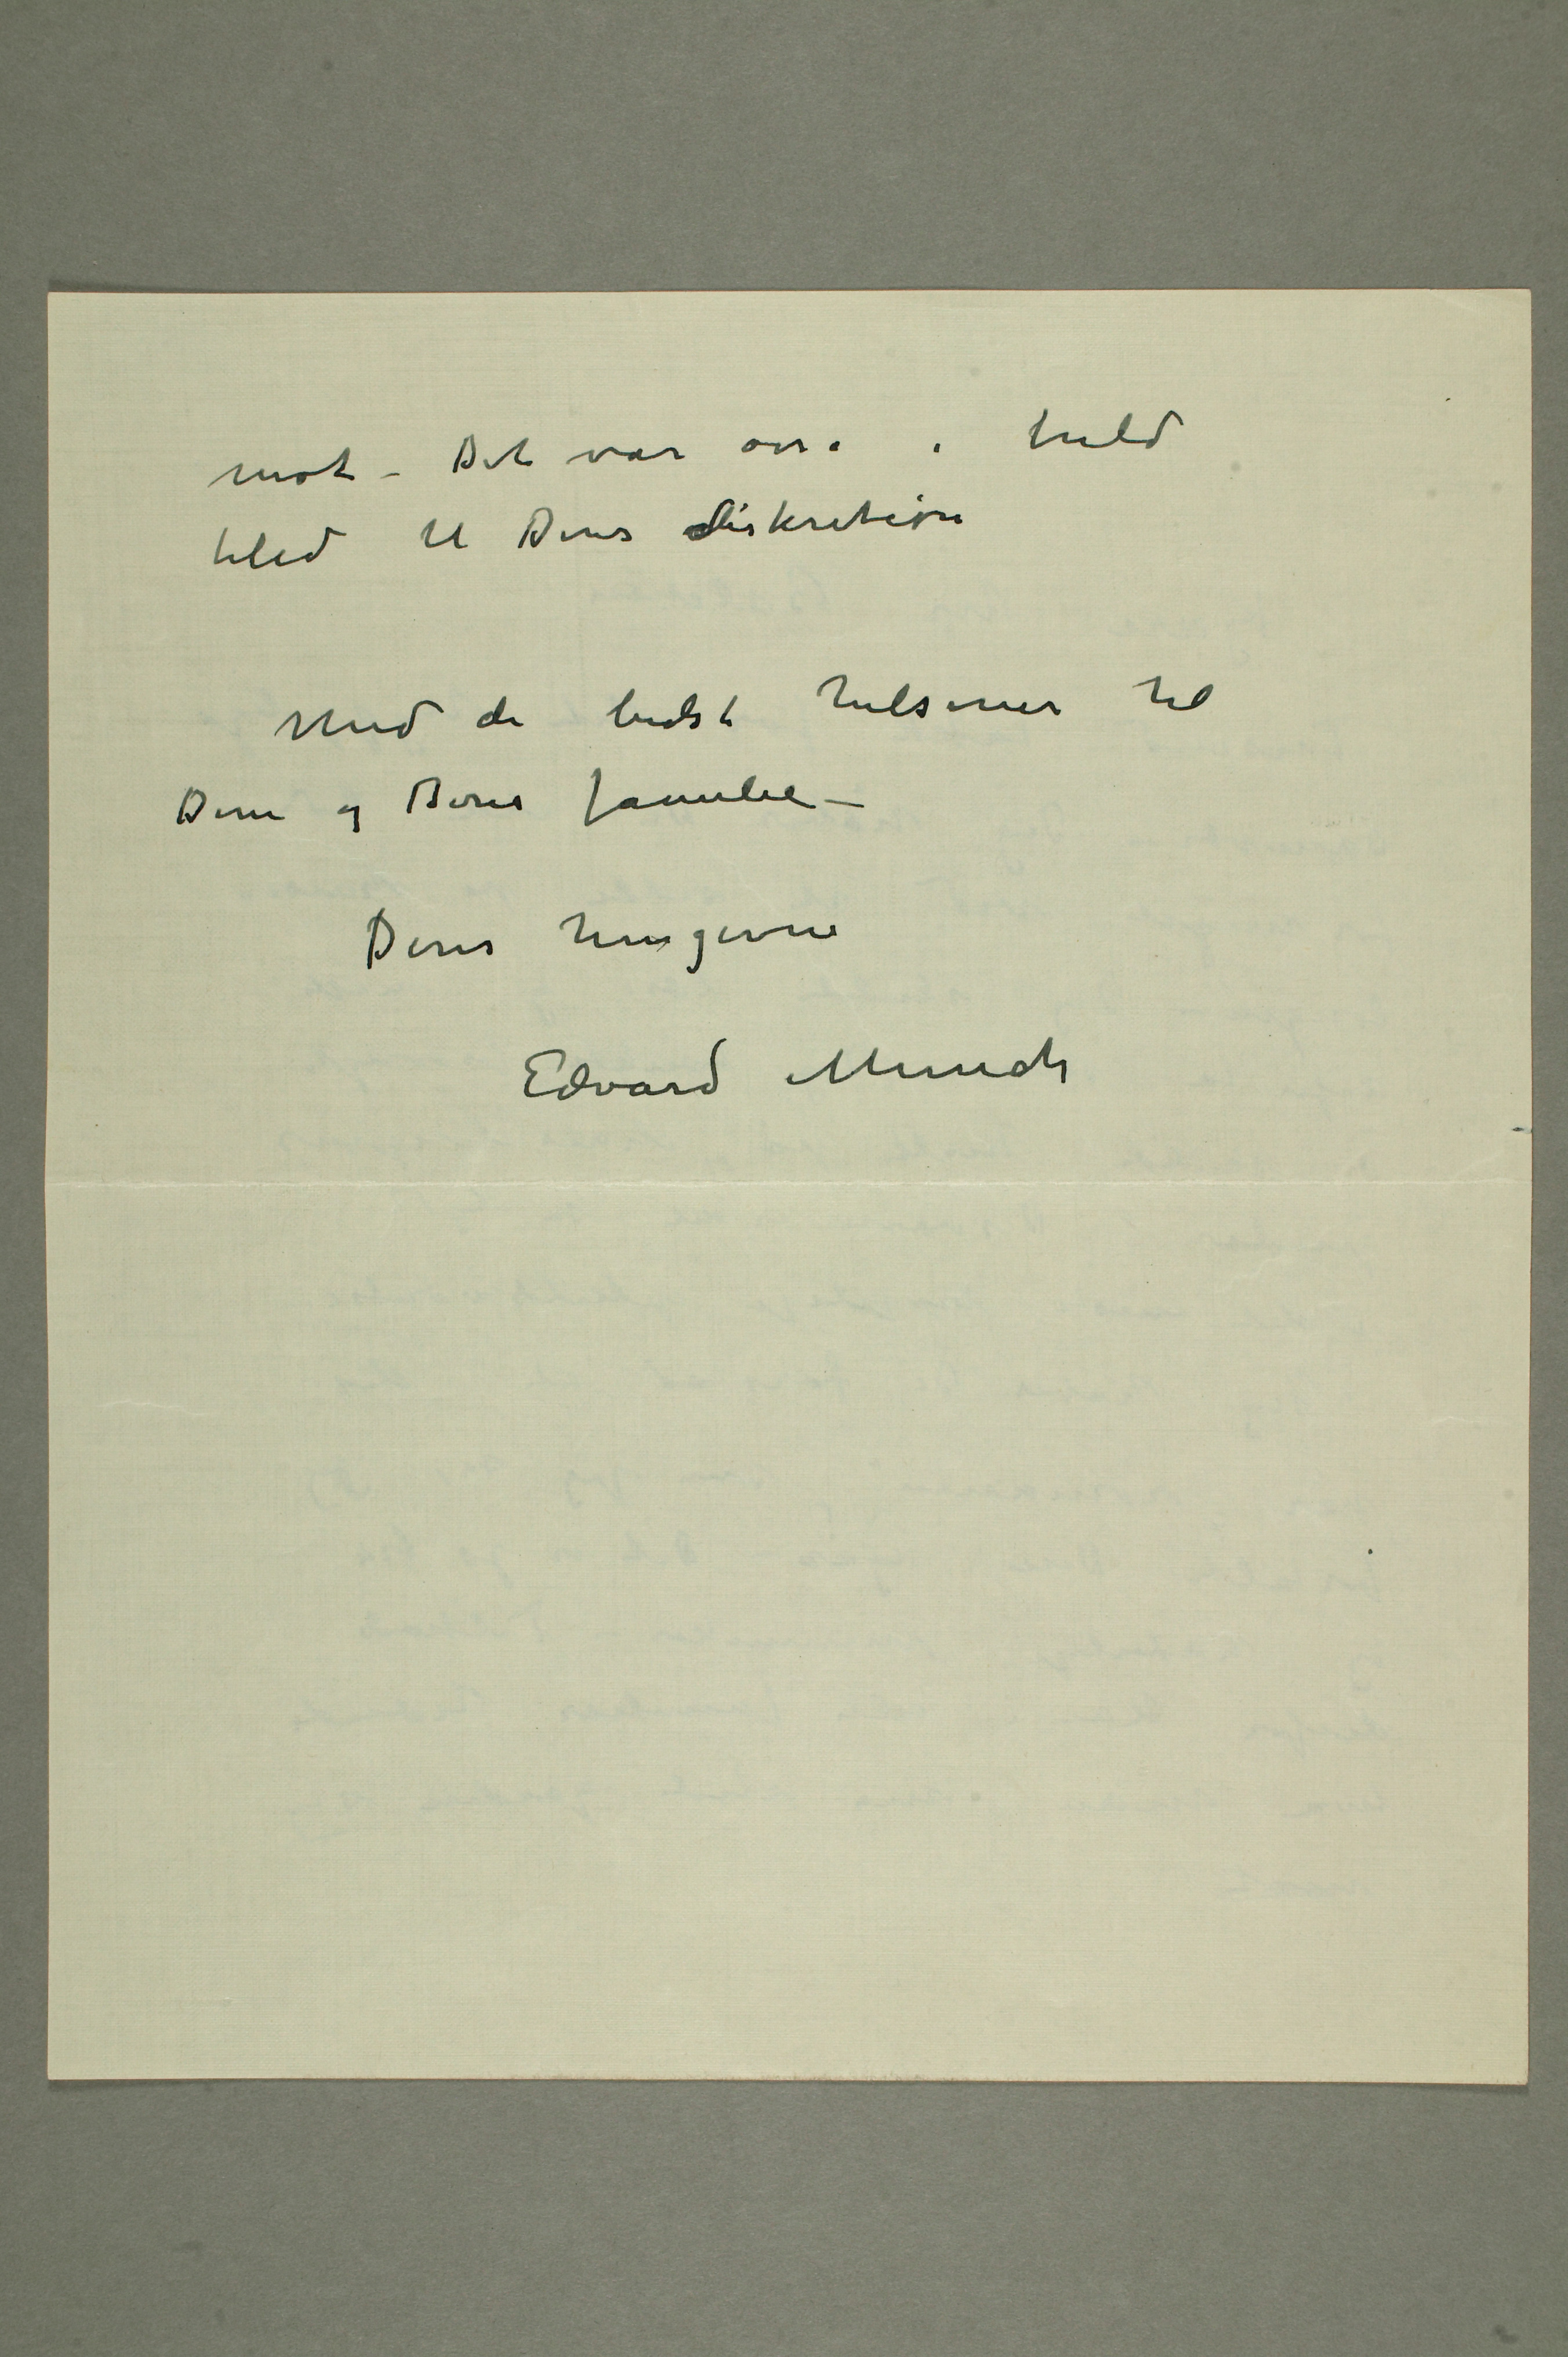 mot – Det var oså i tuld
tilid til Deres diskretion
Med de bedste hilsener til
Dem og Deres familie –
Deres hengivne
Edvard Munch